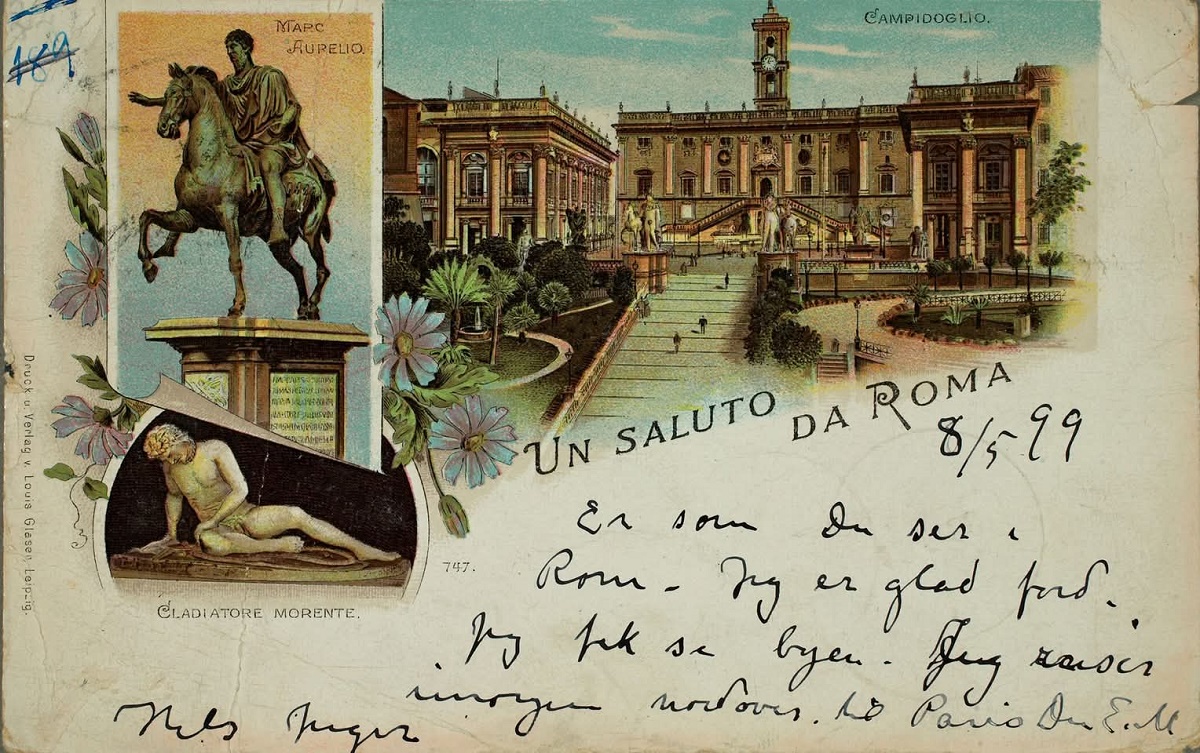 189
MARC
AURELIO.
CAMPIDOGLIO.
UN SALUTO DA ROMA
8/5 99
Er som Du ser i
Rom - Jeg er glad ford.
Jeg fik se byen - Jeg reiser
imorgen nordover. til Paris Din E. M
Hils
747.
GLADIATORE MORENTE.
Druck u. Verlag v. Louis Glaser, Leipzig.